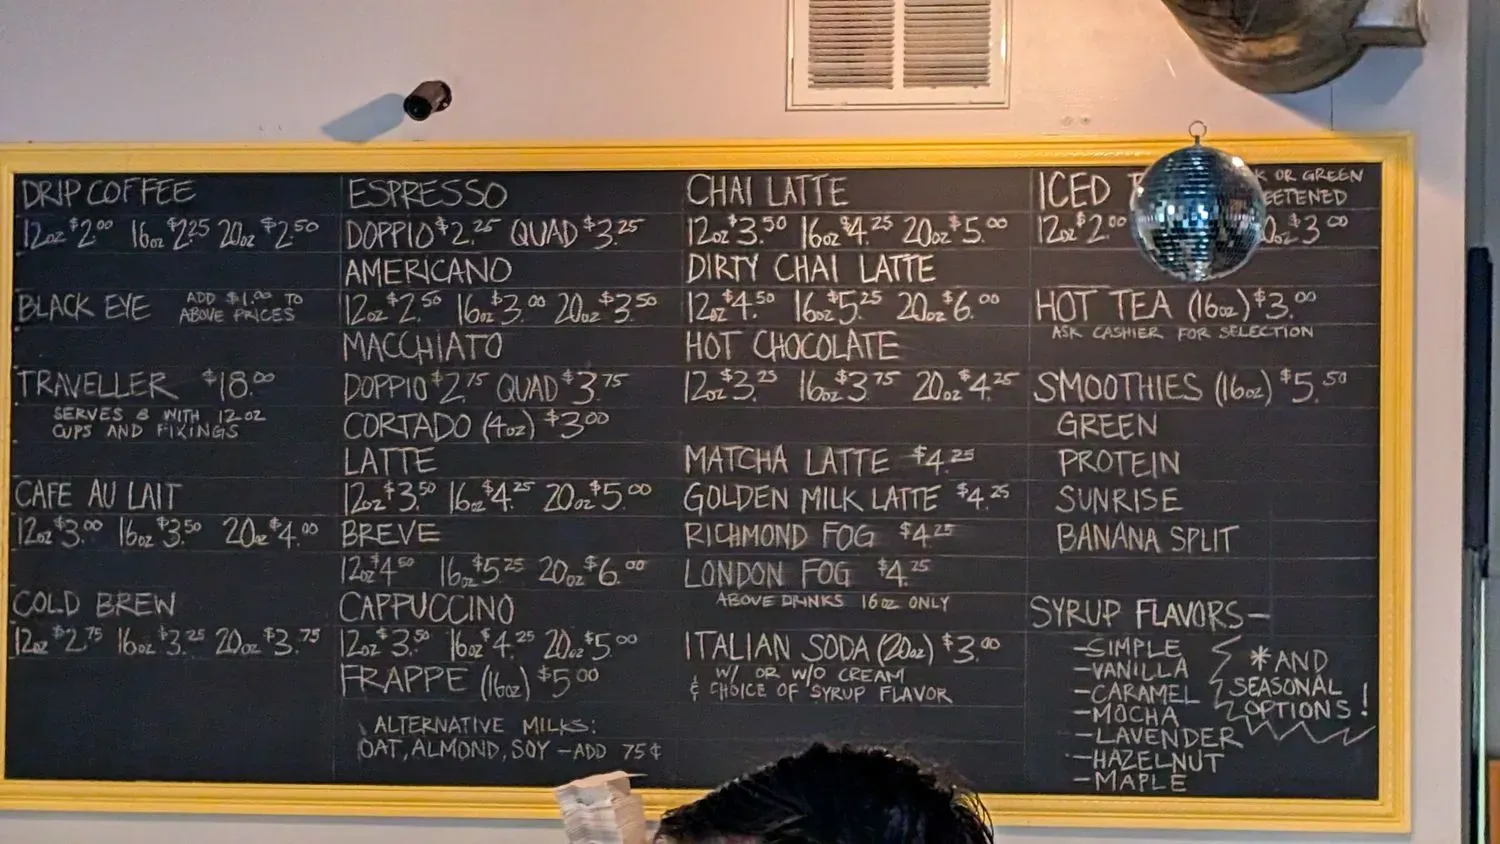 DRIP COFFEE
12oz $2.00 16oz $2.25 20oz $2.50
BLACK EYE ADD $1.00 TO
ABOVE PRICES
TRAVELLER $18.00
SERVES 8 WITH 12 OZ
CUPS AND FIXINGS
CAFE AU LAIT
12oz $3.00 16oz $3.50 20oz $4.00
COLD BREW
12oz $2.75 16oz $3.25 20oz $3.75
ESPRESSO
DOPPIO $2.25 QUAD $3.25
AMERICANO
12oz $2.50 16oz $3.00 20oz $3.50
MACCHIATO
DOPPIO $2.75 QUAD $3.75
CORTADO (4oz) $3.00
LATTE
12oz $3.50 16oz $4.25 20oz $5.00
BREVE
12oz $4.50 16oz $5.25 20oz $6.00
CAPPUCCINO
12oz $3.50 16oz $4.25 20oz $5.00
FRAPPE (16oz) $5.00
ALTERNATIVE MILKS:
OAT, ALMOND, SOY - ADD 75¢
CHAI LATTE
12oz $3.50 16oz $4.25 20oz $5.00
DIRTY CHAI LATTE
12oz $4.50 16oz $5.25 20oz $6.00
HOT CHOCOLATE
12oz $3.25 16oz $3.75 20oz $4.25
MATCHA LATTE $4.25
GOLDEN MILK LATTE $4.25
RICHMOND FOG $4.25
LONDON FOG $4.25
ABOVE DRINKS 16oz ONLY
ITALIAN SODA (20oz) $3.00
W/ OR W/O CREAM
& CHOICE OF SYRUP FLAVOR
ICED OR GREEN
12oz $2.00 $3.00
HOT TEA (16oz) $3.00
ASK CASHIER FOR SELECTION
SMOOTHIES (16oz) $5.50
GREEN
PROTEIN
SUNRISE
BANANA SPLIT
SYRUP FLAVORS-
-SIMPLE
-VANILLA
-CARAMEL
-MOCHA
-LAVENDER
-HAZELNUT
-MAPLE
*AND
SEASONAL
OPTIONS!